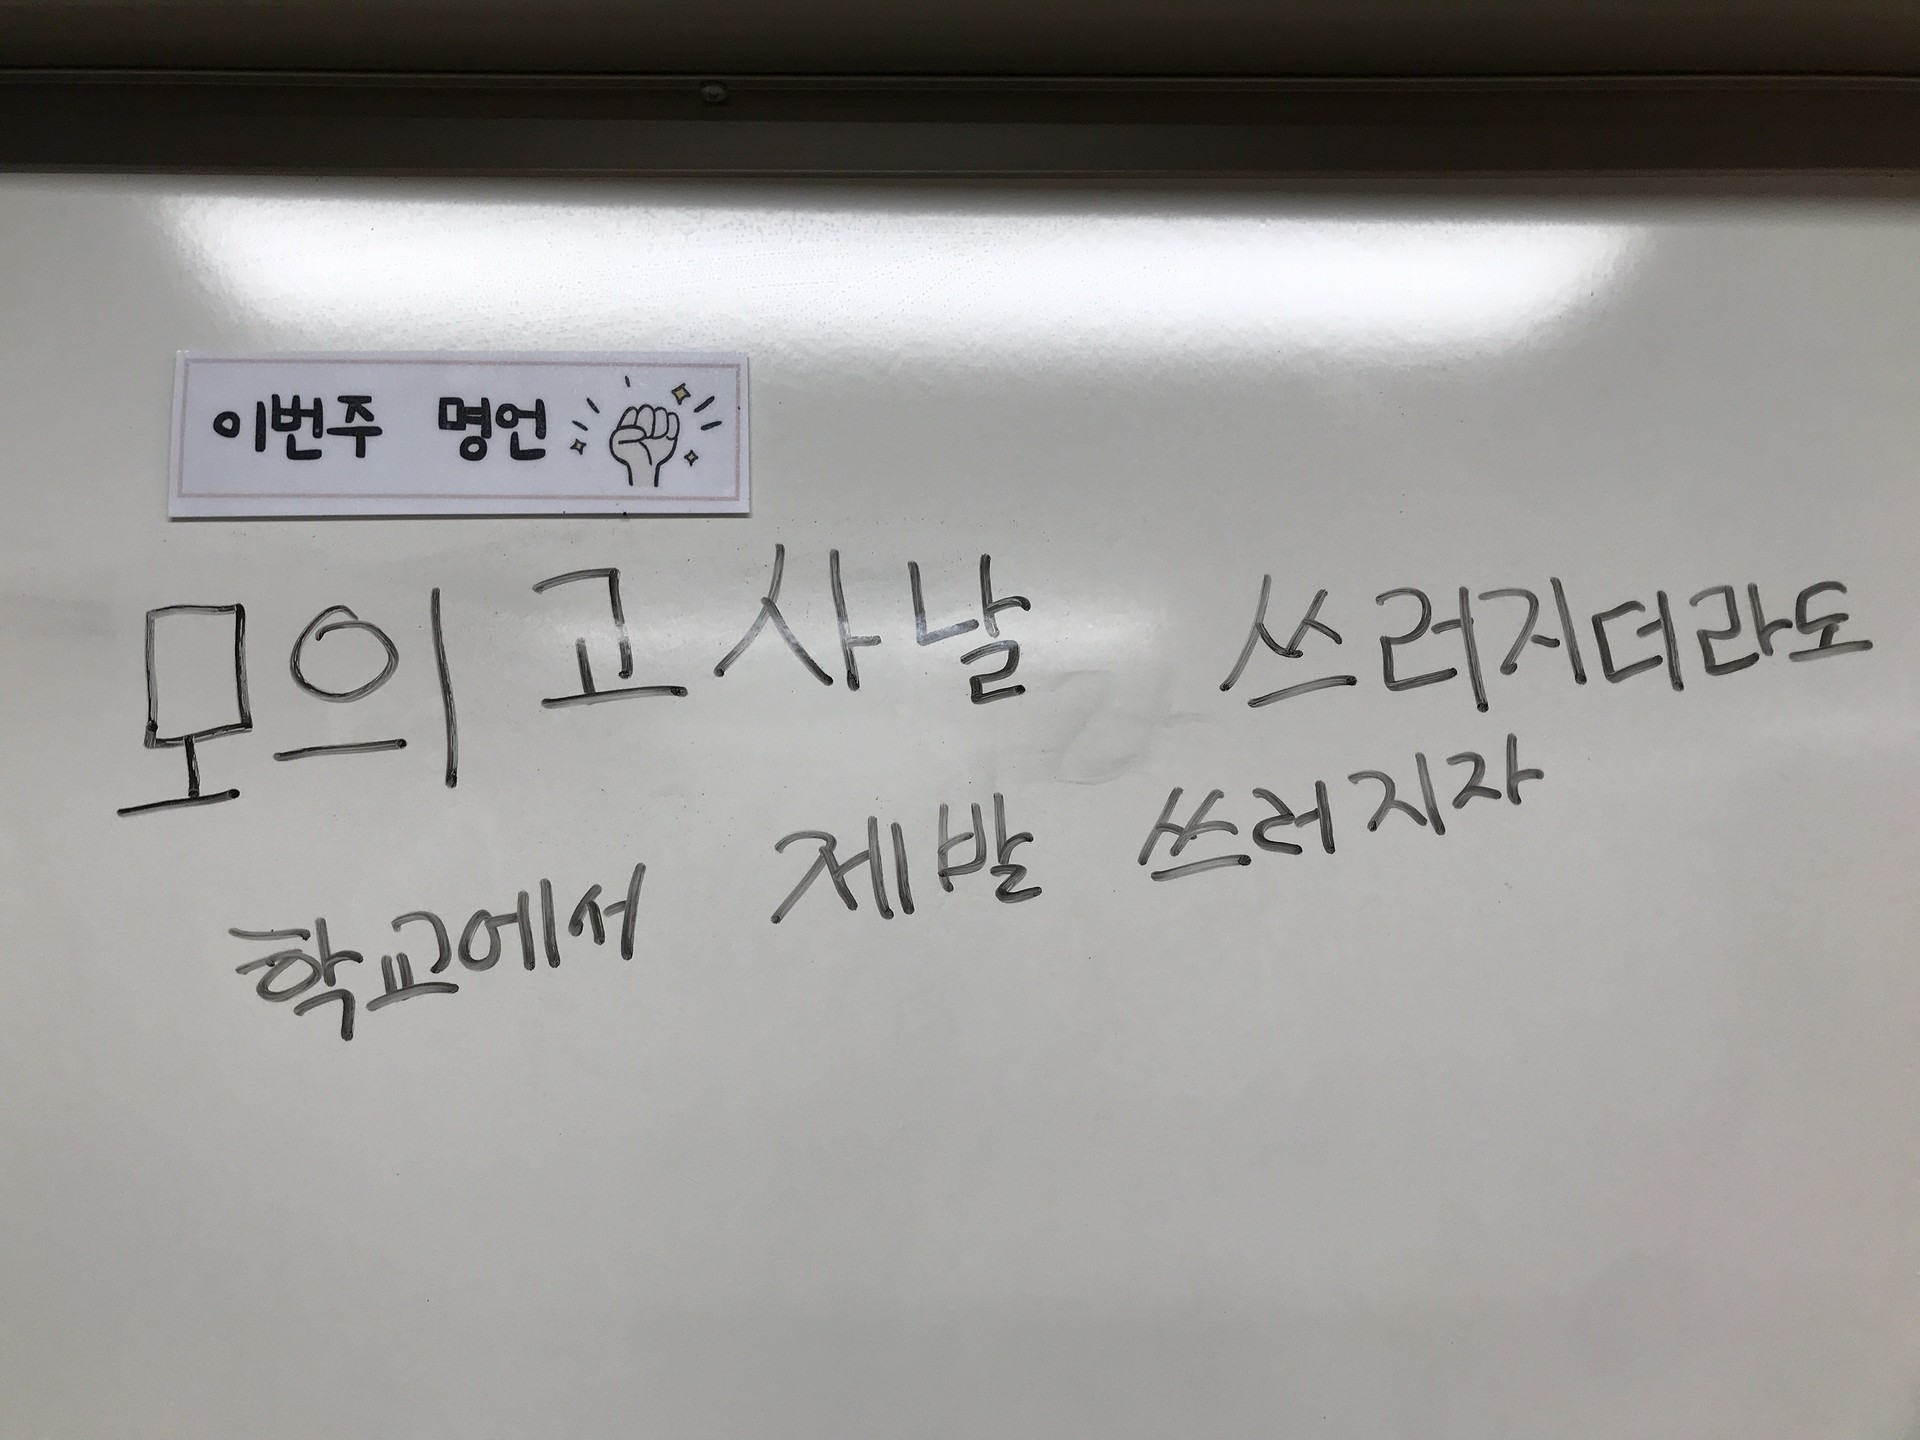 이번주 명언
모의고사날 쓰러지더라도
학교에서 제발 쓰러지자